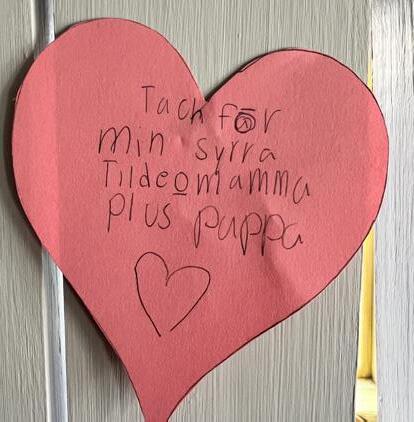 Tach för
min syrra
Tildeomamma
plus pappa